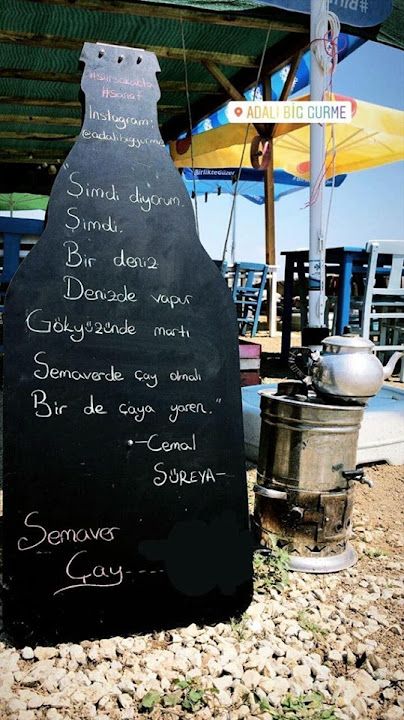 #şiirsokakta
#sanat
Instagram:
@adalibiggurme
ADALI BIG GURME
Birlikte Güzel
"Şimdi diyorum.
Şimdi.
Bir deniz
Denizde vapur
Gökyüzünde martı
Semaverde çay olmalı
Bir de çaya yaren."
-Cemal
SÜREYA-
Semaver
Çay---